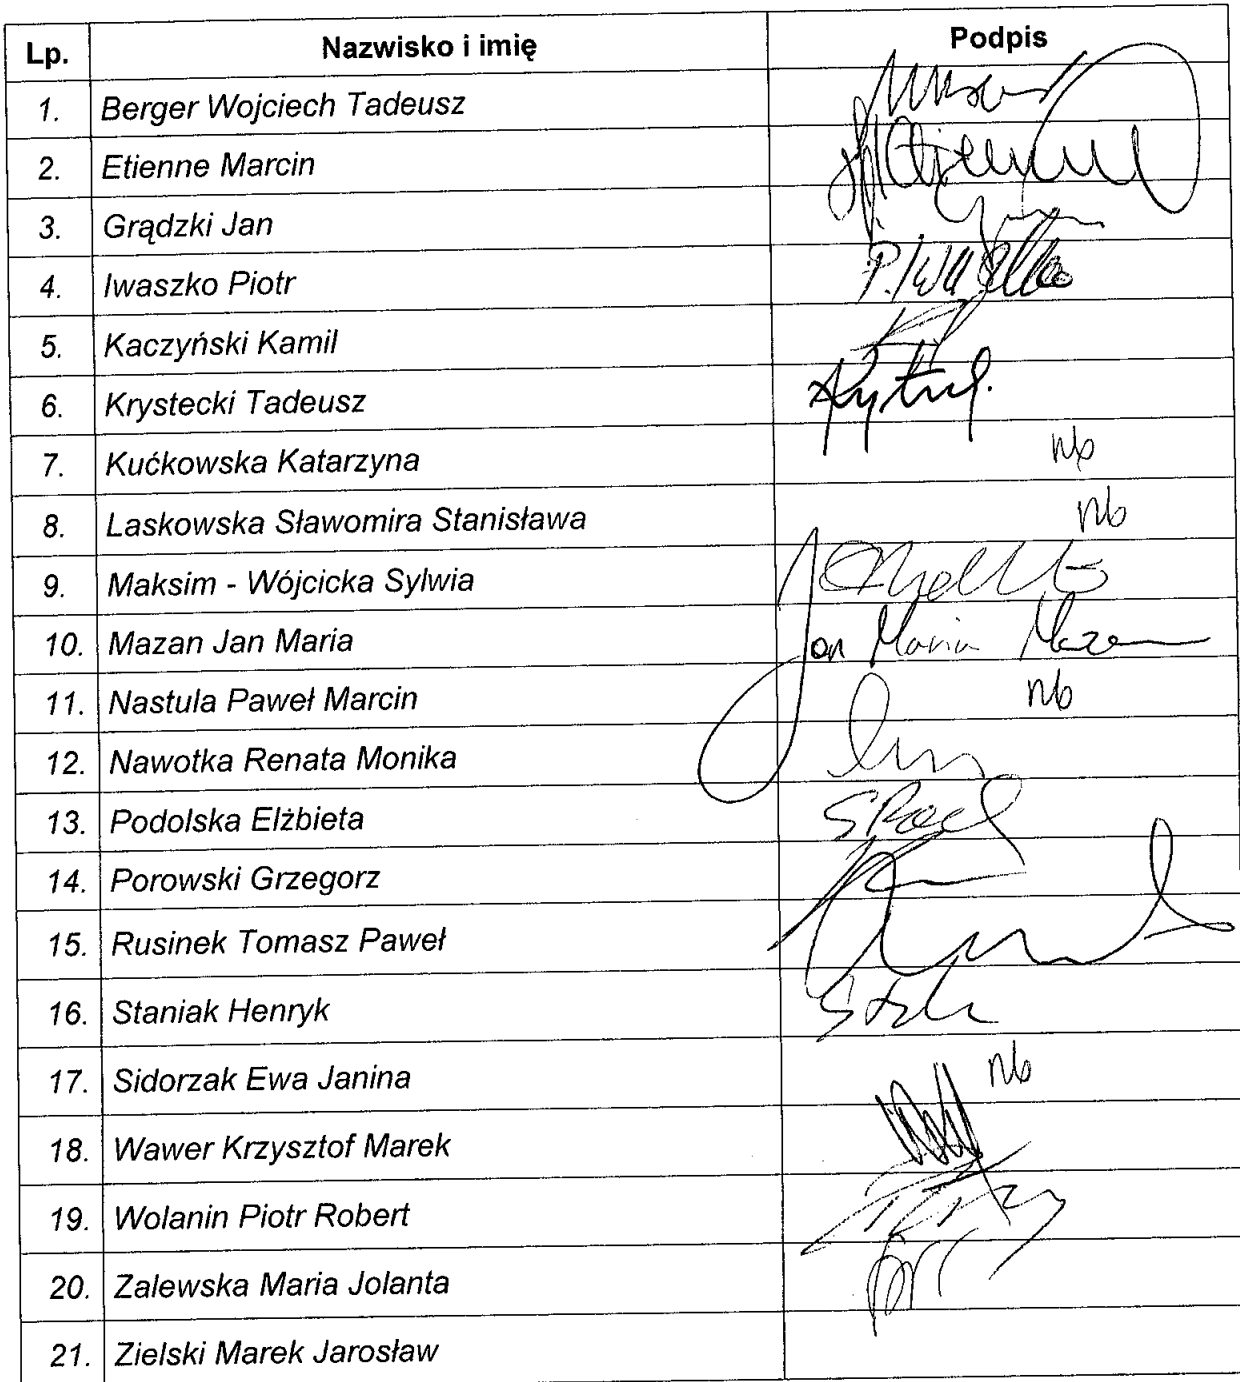 Lp. Nazwisko i imię Podpis
1. Berger Wojciech Tadeusz
2. Etienne Marcin
3. Grądzki Jan
4. Iwaszko Piotr P. Iwaszko
5. Kaczyński Kamil
6. Krystecki Tadeusz
7. Kućkowska Katarzyna nb
8. Laskowska Sławomira Stanisława nb
9. Maksim - Wójcicka Sylwia
10. Mazan Jan Maria Jan Maria Mazan
11. Nastula Paweł Marcin nb
12. Nawotka Renata Monika
13. Podolska Elżbieta
14. Porowski Grzegorz
15. Rusinek Tomasz Paweł
16. Staniak Henryk
17. Sidorzak Ewa Janina nb
18. Wawer Krzysztof Marek
19. Wolanin Piotr Robert
20. Zalewska Maria Jolanta
21. Zielski Marek Jarosław